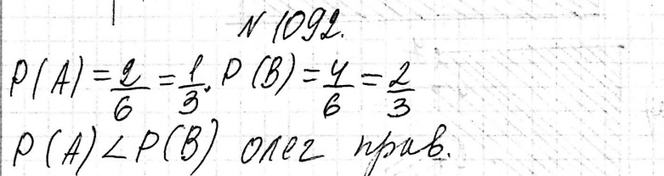 N 1092.
P(A) = 2/6 = 1/3. P(B) = 4/6 = 2/3
P(A) < P(B) олег прав.